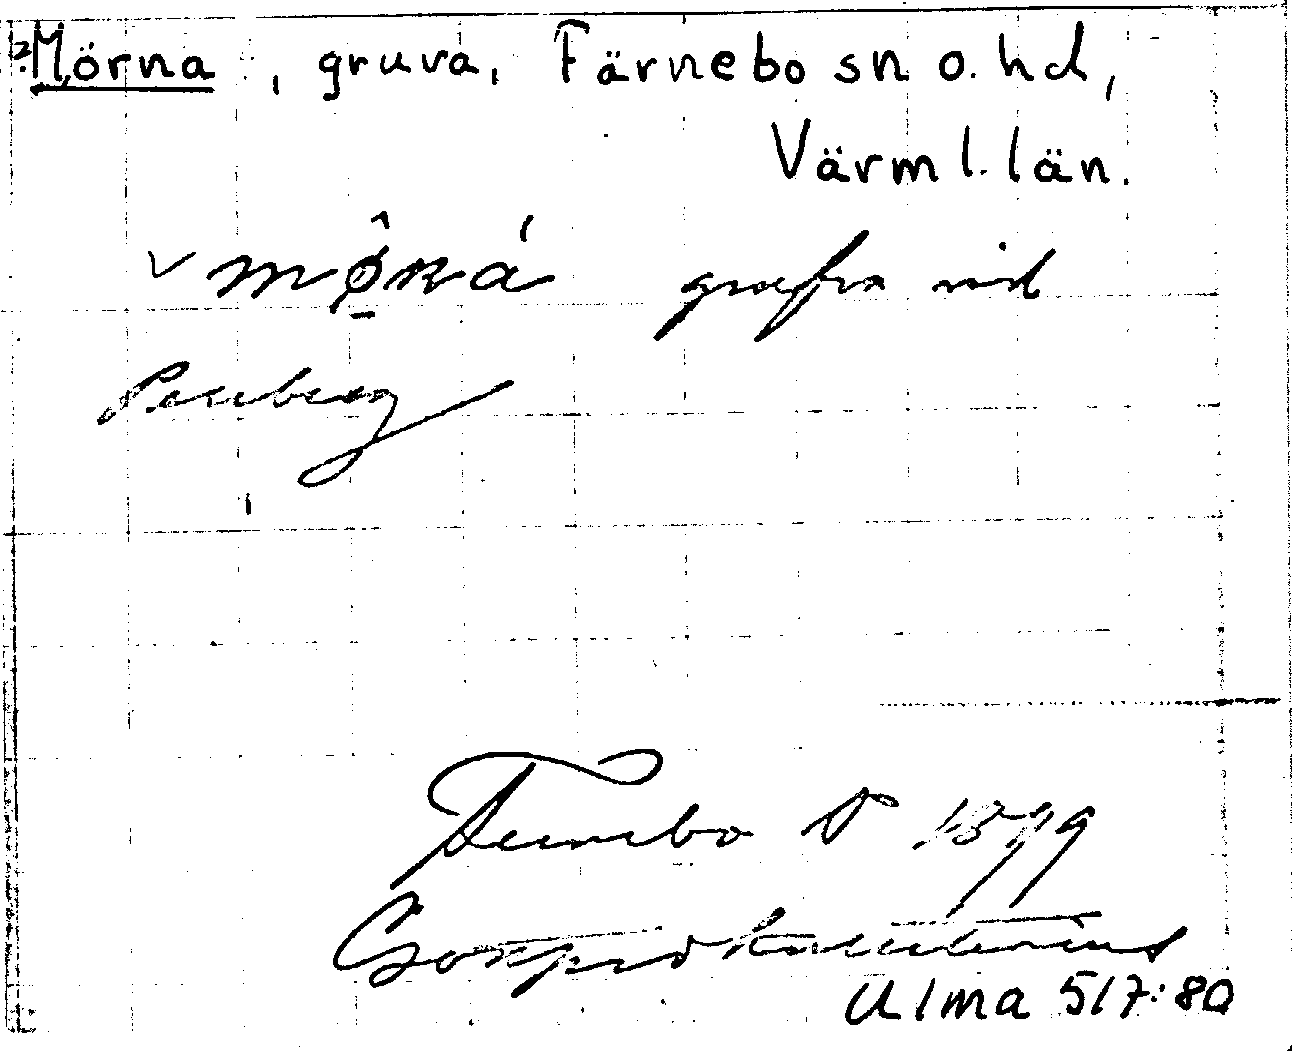 ?Mörna, gruva, Färnebo sn o. hd,
Värml. län.
grufva vid
Persberg
Fernebo S 1879
Ulma 517:80